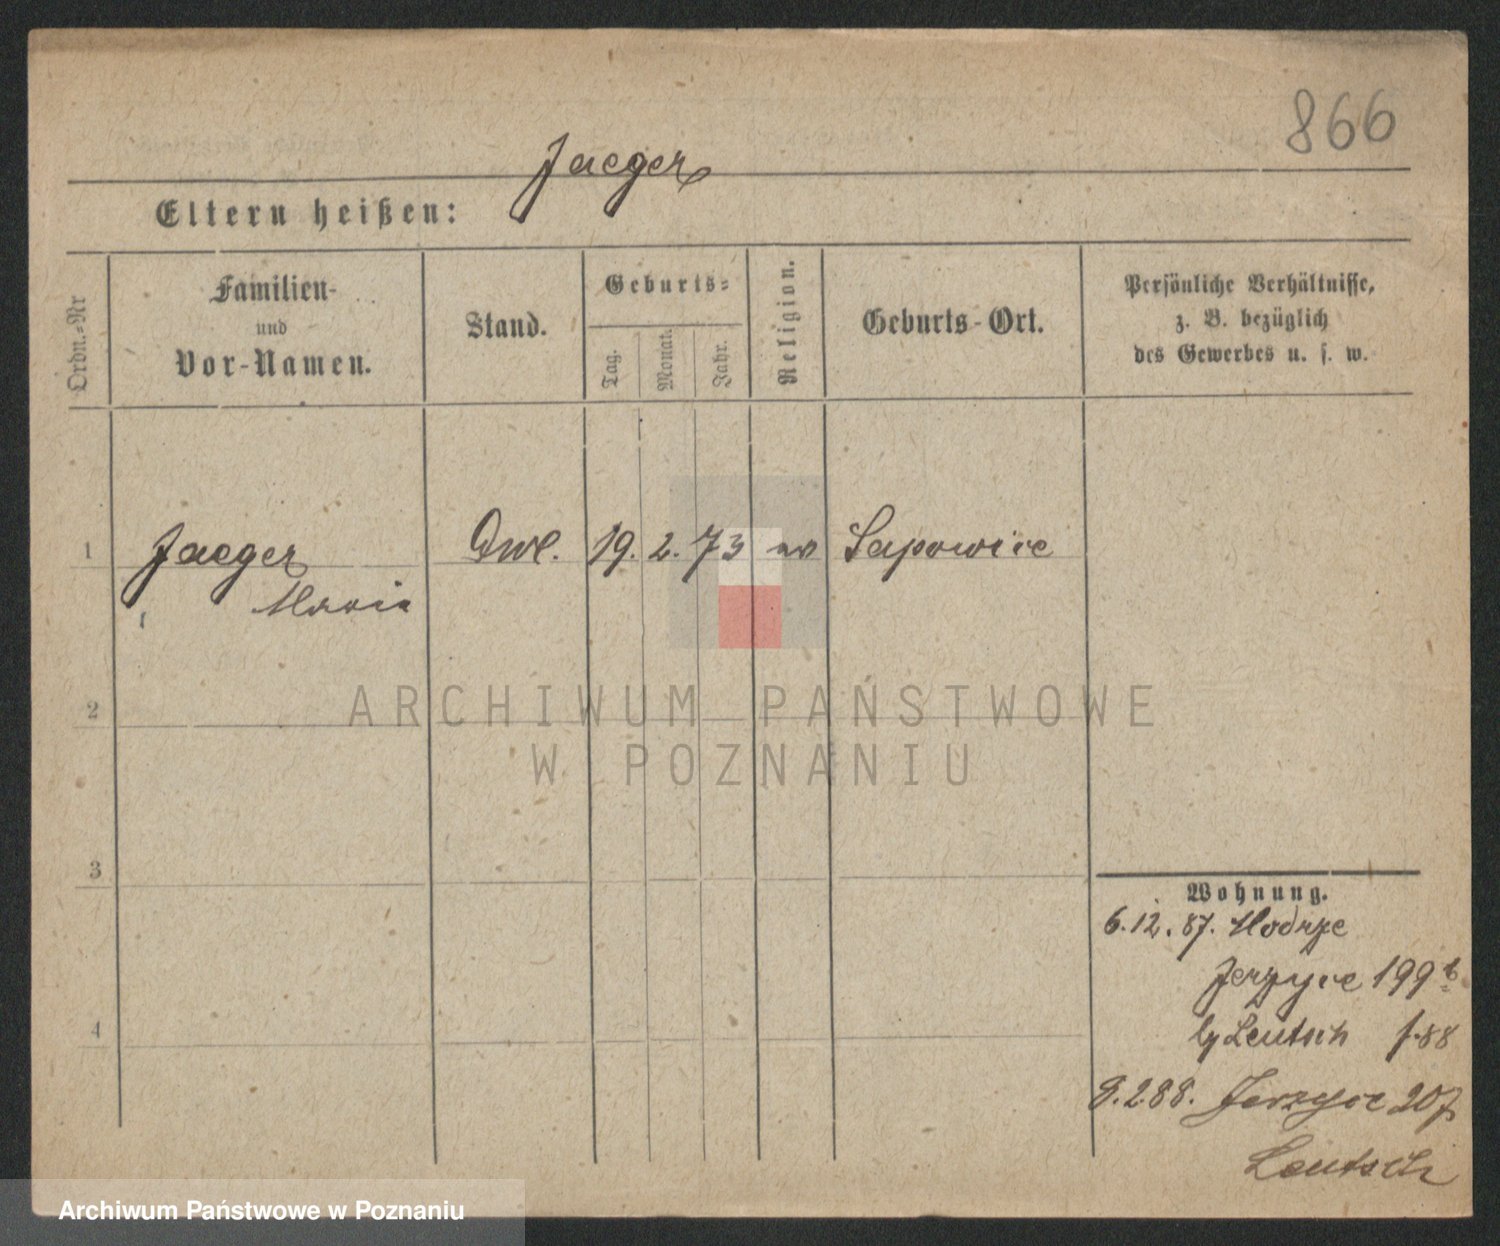 866
Jaeger
Eltern heißen:
Ordn.=Nr
Familien-
und
Vor-Namen.
Stand.
Geburts=
Tag.
Monat.
Jahr.
Religion.
Geburts-Ort.
Persönliche Verhältnisse,
z. B. bezüglich
des Gewerbes u. s. w.
1 Jaeger 19. 2. 73 Sapowice
Maria
2
ARCHIWUM PAŃSTWOWE
W POZNANIU
3
Wohnung.
6.12.87. Modrze
Jerzyce 199
Leutsch
4
8.2.88. Jerzyce 207
Leutsch
Archiwum Państwowe w Poznaniu